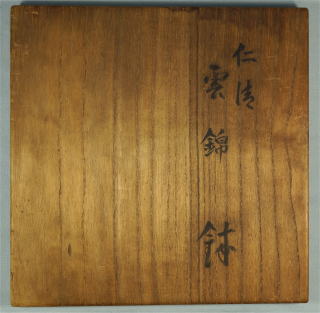 仁清
雲錦鉢